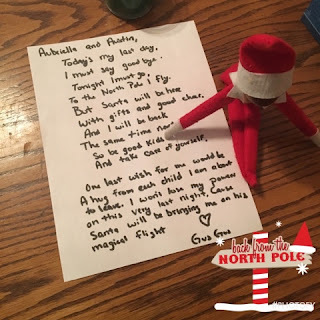 Aubrielle and Austin,
Today's my last day,
I must say good bye.
Tonight I must go
To the North Pole I fly.
But Santa will be here
With gifts and good cheer.
And I will be back
The same time next
So be good kids
And take care of yourself.
One last wish for me would be
A hug from each child I am about
to leave. I won't lose my power
on this very last night, Cause
Santa will be bringing me on his
magical flight
Gus Gus
back from the
NORTH POLE